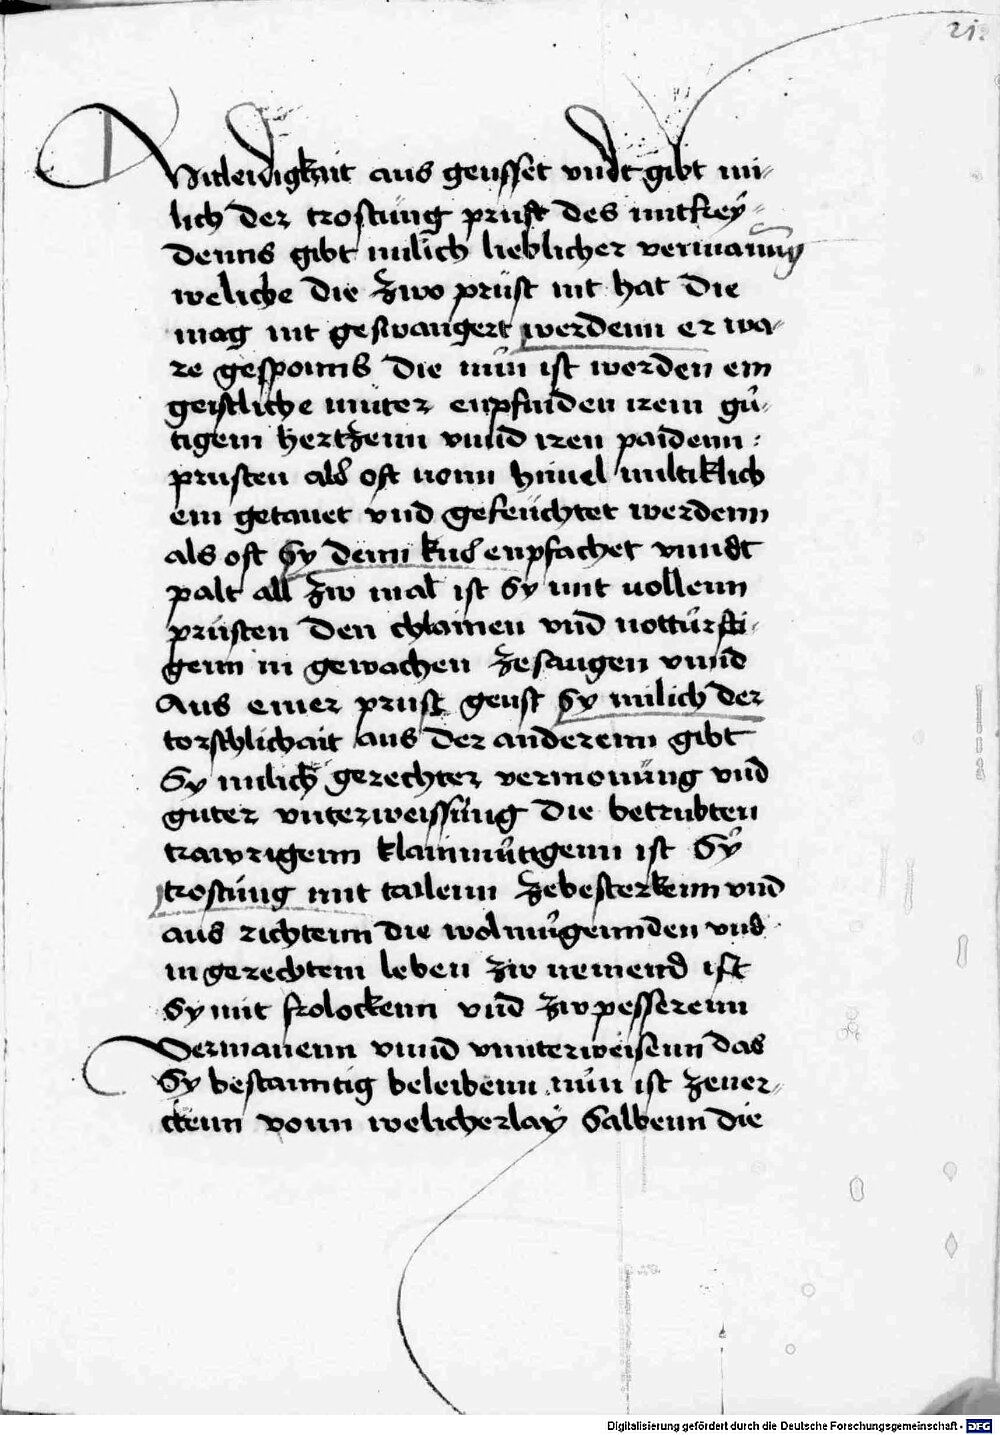 21.
Mitleidigkait aus geusset vndt gibt mi-
lich der trostung prust des mitfrey-
denns gibt milich lieblicher vermanung
weliche die zwo prüst nit hat die
mag nit geswangert werdenn er wa-
re gespouns die nün ist worden ein
geistliche müter enpfinden irem gů-
tigem hertzenn vnnd iren paidenn
prusten als oft vonn himel miltiklich
ein getauet vnd gefeüchtet werdenn
als oft Sy denn kus enpfachet vnndt
palt all zw mal ist Sy mit vollenn
prüsten den chlainen vnd nottůrfti-
genn in gewachen zesaugen vnnd
Aus einer prust geust Sy milich der
torschlichait aus der anderenn gibt
Sy milich gerechter vermonüng vnd
guter vnterweissüng die betrubten
trawrigenn klainmůtigenn ist Sy
trostüng mit tailenn zebesterkenn vnd
aus richtenn die wolmůgennden vnd
in gerechtem leben zw nemend ist
Sy mit frolockenn vnd zwpesserenn
vermanenn vnnd vnnterweisenn das
Sy bestanntig beleibenn nün ist zemer-
ckenn vonn welicherlay Salbenn die
Digitalisierung gefördert durch die Deutsche Forschungsgemeinschaft - DFG